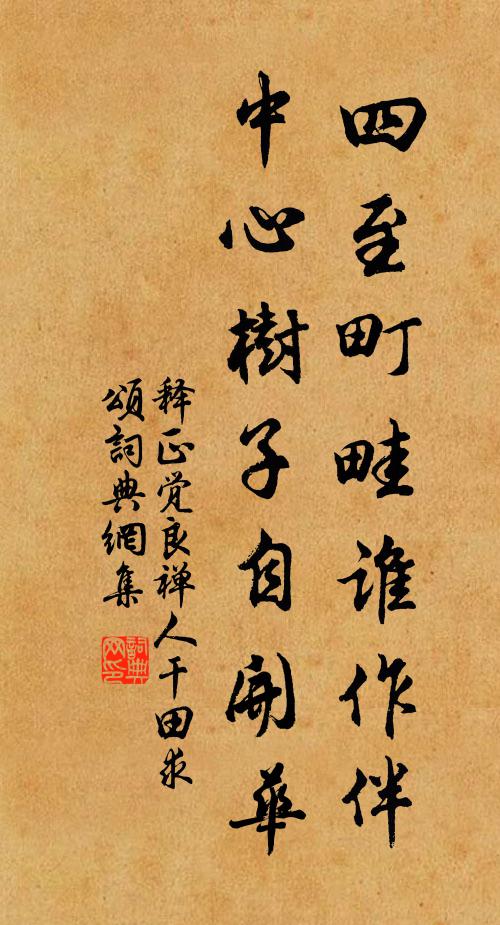 四至町畦谁作伴
中心樹子自開華
释正觉良禅人干田求
頌詞典網集
詞典
网印